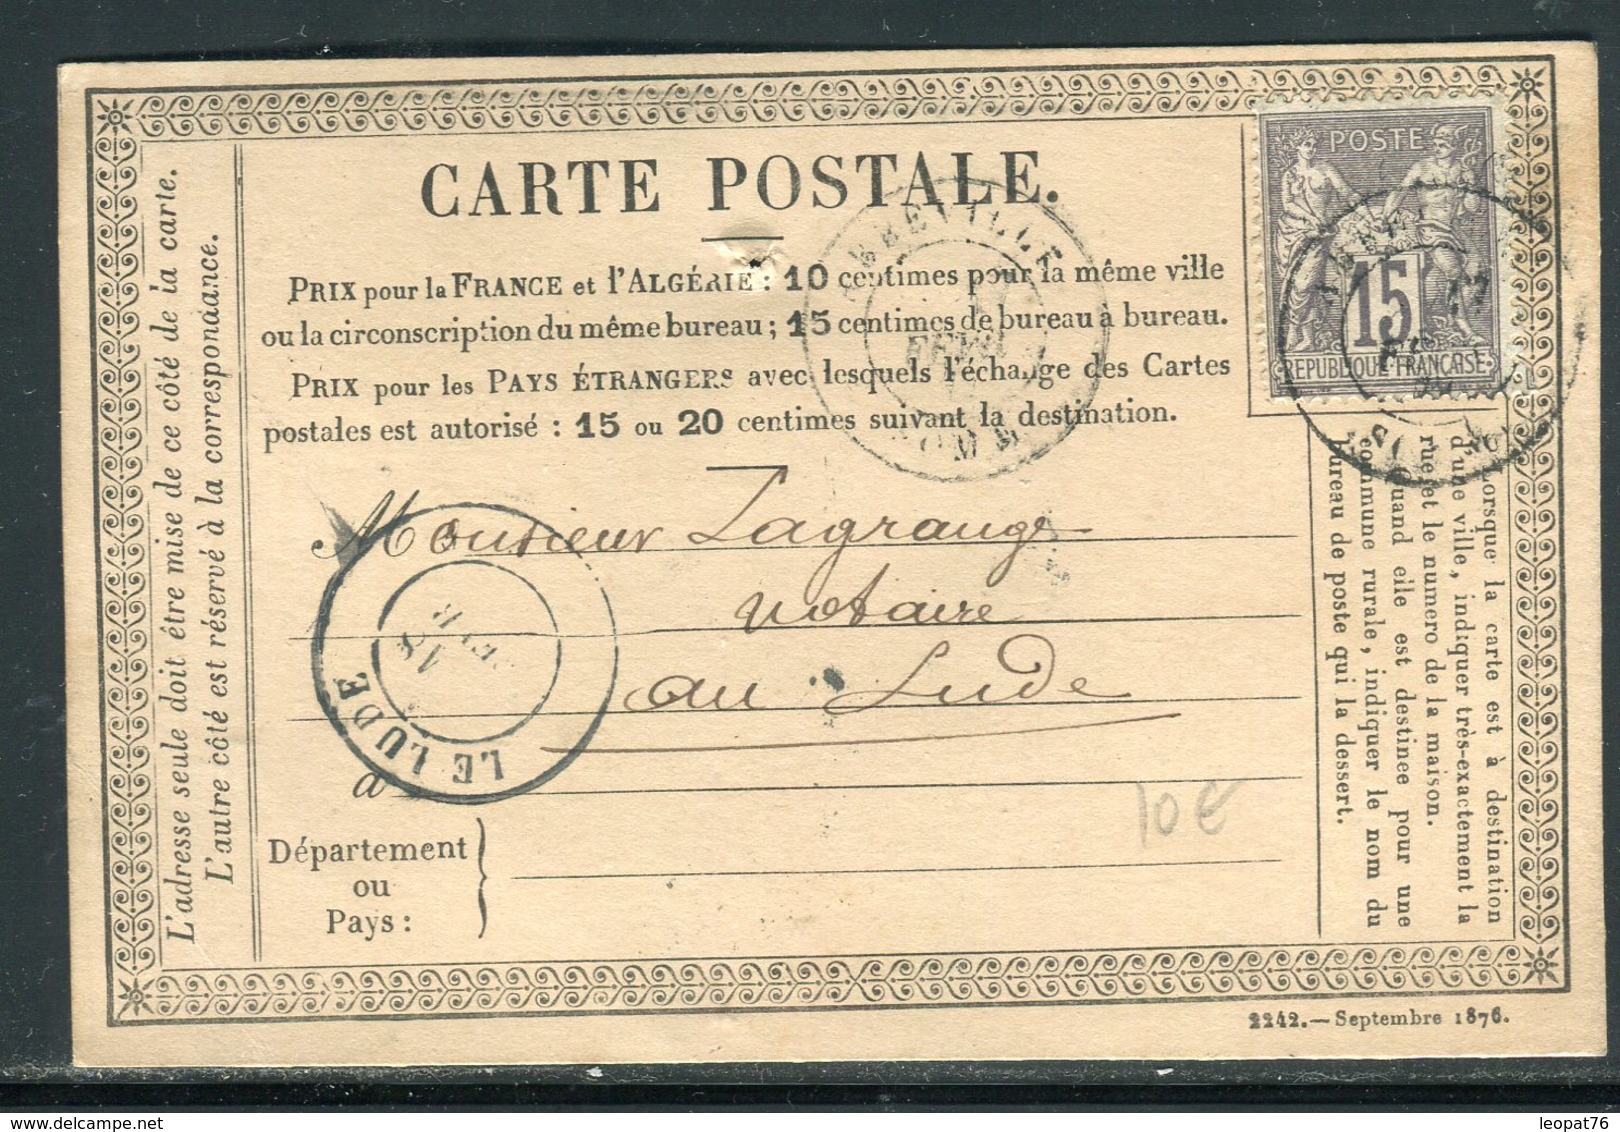 CARTE POSTALE.
PRIX pour la FRANCE et l'ALGÉRIE : 10 centimes pour la même ville
ou la circonscription du même bureau ; 15 centimes de bureau à bureau.
PRIX pour les PAYS ÉTRANGERS avec lesquels l'échange des Cartes
postales est autorisé : 15 ou 20 centimes suivant la destination.
POSTE
15
REPUBLIQUE FRANÇAISE
ABBEVILLE
FEVR
SOMME
Monsieur Lagrange
Notaire
au Lude
à
LE LUDE
18
Département
ou
Pays :
10 €
L'adresse seule doit être mise de ce côté de la carte.
L'autre côté est réservé à la correspondance.
Lorsque la carte est à destination
d'une ville, indiquer très-exactement la
rue et le numero de la maison.
Quand elle est destinee pour une
commune rurale, indiquer le nom du
bureau de poste qui la dessert.
2242. — Septembre 1876.
leopat76